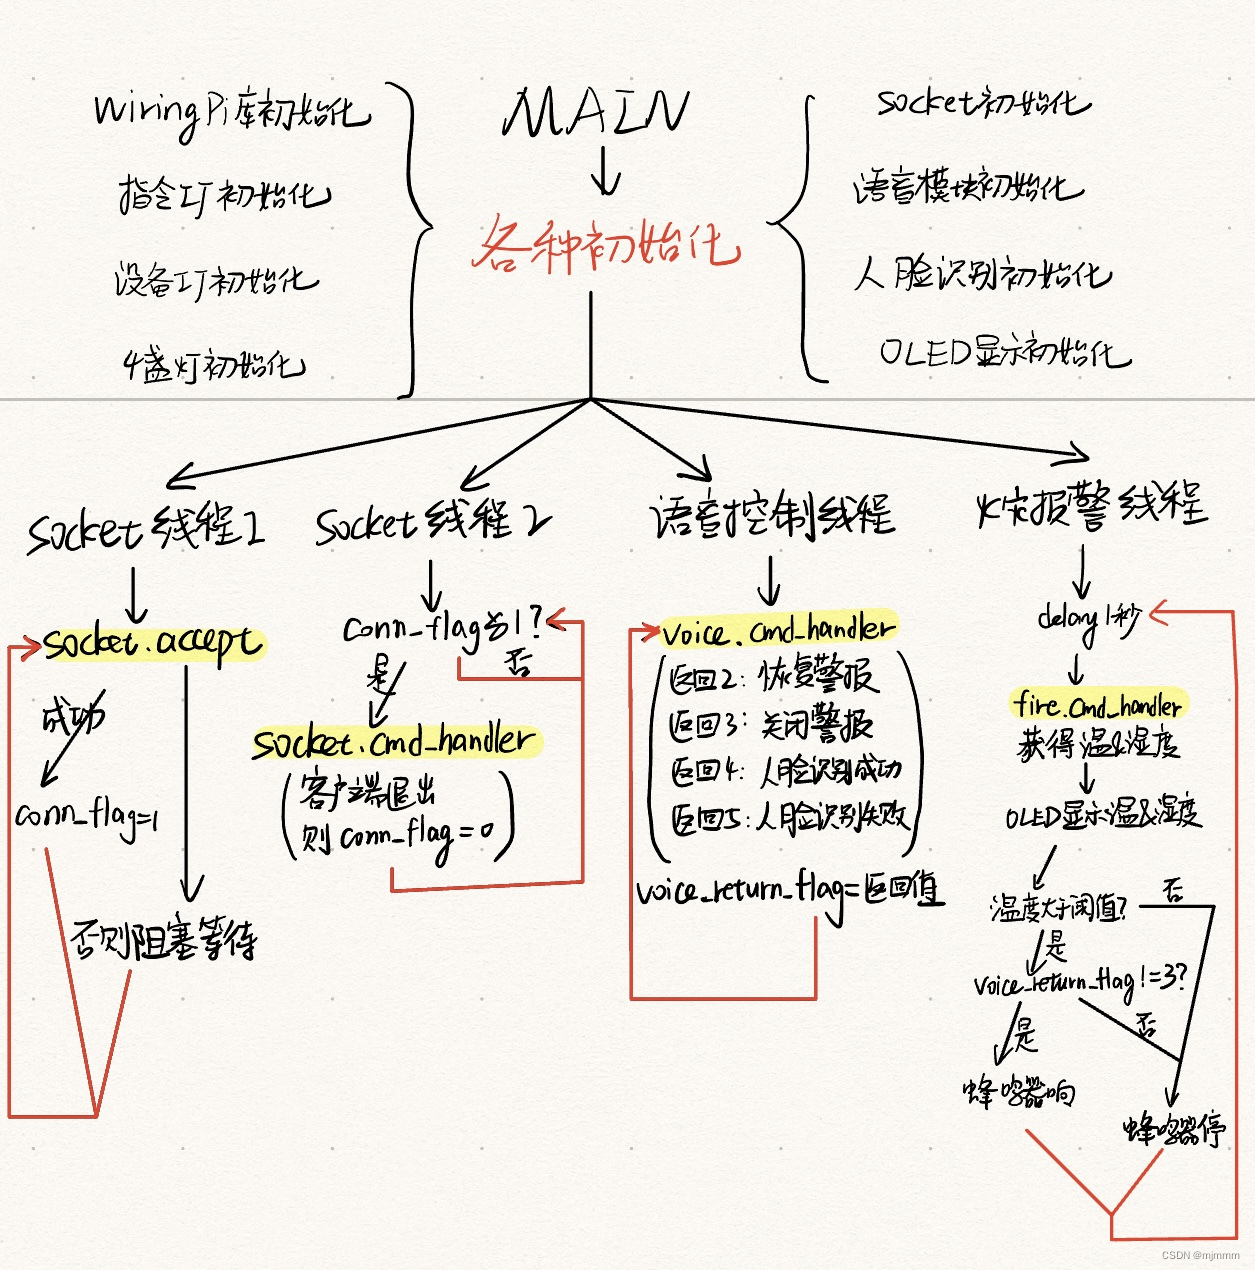 MAIN
各种初始化
wiringPi库初始化
指令工厂初始化
设备工厂初始化
4盏灯初始化
socket初始化
语音模块初始化
人脸识别初始化
OLED显示初始化
socket线程1
socket.accept
成功
conn_flag=1
否则阻塞等待
socket线程2
conn_flag为1?
是
否
socket.cmd_handler
(客户端退出
则conn_flag=0)
语音控制线程
voice.cmd_handler
(返回2:恢复警报
返回3:关闭警报
返回4:人脸识别成功
返回5:人脸识别失败)
voice_return_flag=返回值
火灾报警线程
delay1秒
fire.cmd_handler
获得温&湿度
OLED显示温&湿度
温度大于阈值?
否
是
voice_return_flag!=3?
是
否
蜂鸣器响
蜂鸣器停
CSDN @mjmmm